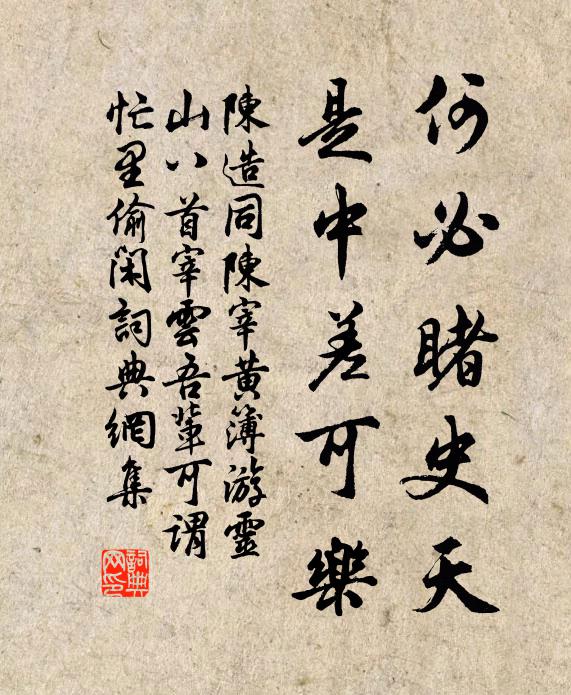 何必睹史天
是中差可樂
陳造同陳宰黃簿游靈
山八首宰雲吾輩可謂
忙里偷閑詞典網集
詞典
网印